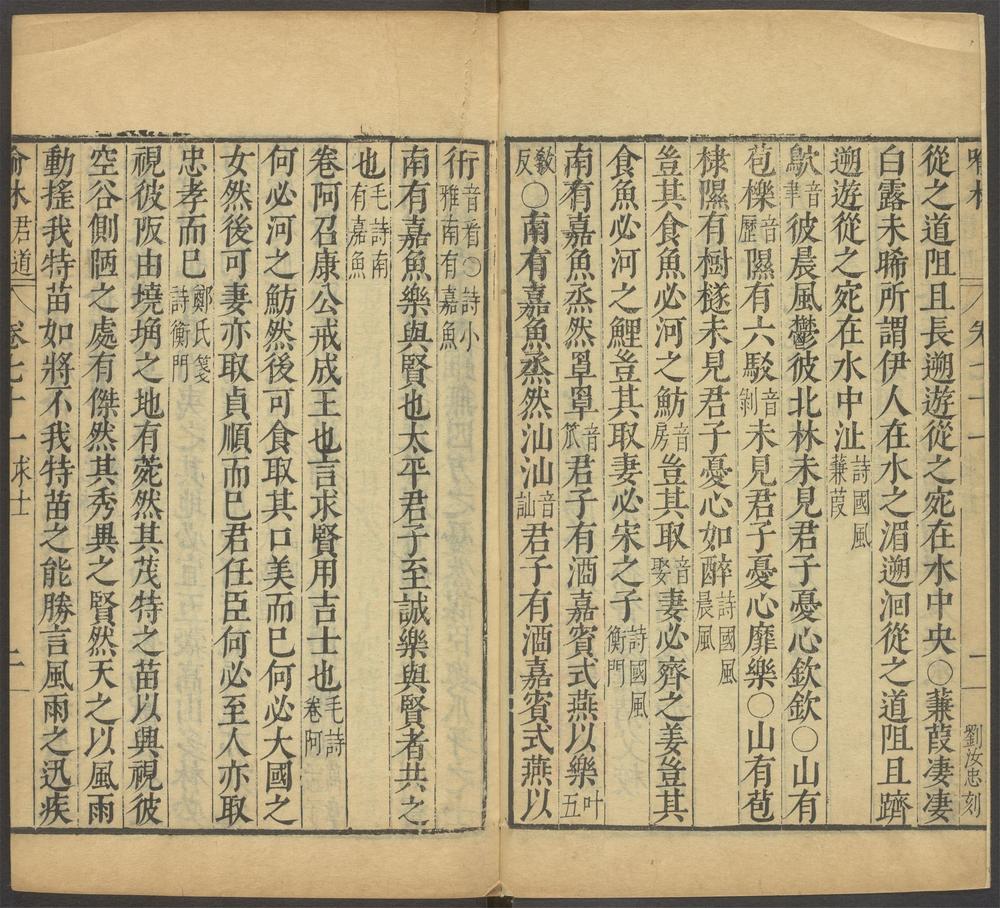 劉汝忠刻
從之道阻且長遡遊從之宛在水中央○蒹葭凄凄
白露未晞所謂伊人在水之湄遡洄從之道阻且躋
遡遊從之宛在水中沚詩國風蒹葭
鴥音聿彼晨風鬱彼北林未見君子憂心欽欽○山有
苞櫟音歷隰有六駁音剝未見君子憂心靡樂○山有苞
棣隰有樹檖未見君子憂心如醉詩國風晨風
豈其食魚必河之魴音房豈其取音娶妻必齊之姜豈其
食魚必河之鯉豈其取妻必宋之子詩國風衡門
南有嘉魚烝然罩罩音笊君子有酒嘉賓式燕以樂叶五
敎反○南有嘉魚烝然汕汕音訕君子有酒嘉賓式燕以
衎音看○詩小雅南有嘉魚
南有嘉魚樂與賢也太平君子至誠樂與賢者共之
也毛詩南有嘉魚
卷阿召康公戒成王也言求賢用吉士也毛詩卷阿
何必河之魴然後可食取其口美而巳何必大國之
女然後可妻亦取貞順而巳君任臣何必至人亦取
忠孝而巳鄭氏箋詩衡門
視彼阪田墝埆之地有菀然其茂特之苗以興視彼
空谷側陋之處有傑然其秀異之賢然天之以風雨
動搖我特苗如將不我特苗之能勝言風雨之迅疾
喻林 君道 卷七十一 求士 二